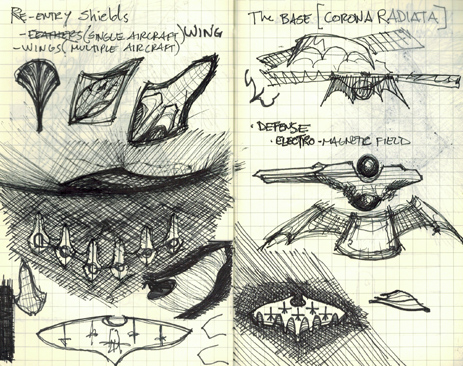 RE-ENTRY SHIELDS
- FEATHERS (SINGLE AIRCRAFT) WING
- WINGS (MULTIPLE AIRCRAFT)
THE BASE [CORONA RADIATA]
• DEFENSE
• ELECTRO-MAGNETIC FIELD